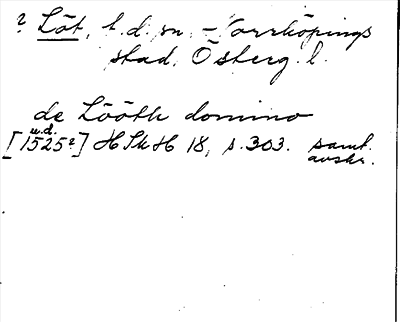 ? Löt, t. d. sn. – Norrköpings
stad, Östergl.
de Lööth domino
u.d.
[1525?] HSkH 18, s. 303. samt.
avskr.